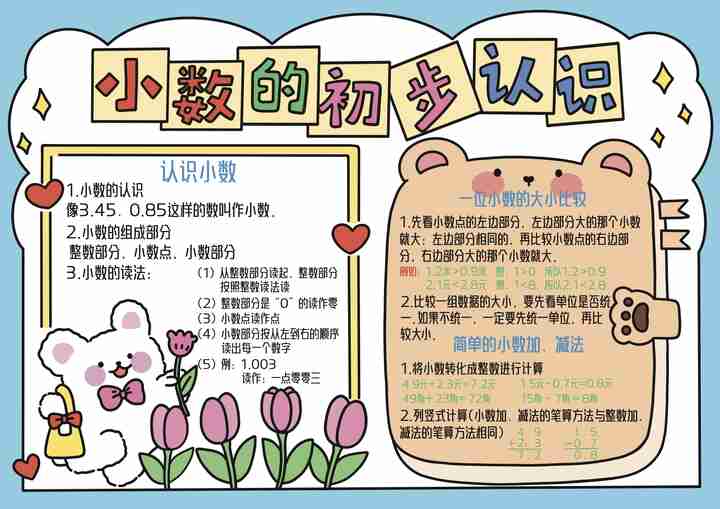 小数的初步认识
认识小数
1.小数的认识
像3.45、0.85这样的数叫作小数。
2.小数的组成部分
整数部分、小数点、小数部分
3.小数的读法:
(1)从整数部分读起,整数部分
按照整数读法读
(2)整数部分是“0”的读作零
(3)小数点读作点
(4)小数部分按从左到右的顺序
读出每一个数字
(5)例:1.003
读作:一点零零三
一位小数的大小比较
1.先看小数点的左边部分,左边部分大的那个小数
就大;左边部分相同的,再比较小数点的右边部
分,右边部分大的那个小数就大。
例如:1.2米>0.9米 1>0 所以1.2>0.9
2.1元<2.8元 1<8, 所以2.1<2.8
2.比较一组数据的大小,要先看单位是否统
一,如果不统一,一定要先统一单位,再比
较大小。
简单的小数加、减法
1.将小数转化成整数进行计算
4.9元+2.3元=7.2元 1.5元-0.7元=0.8元
49角+23角=72角 15角-7角=8角
2.列竖式计算(小数加、减法的笔算方法与整数加、
减法的笔算方法相同)
4.9 1.5
+2.3 -0.7
7.2 0.8